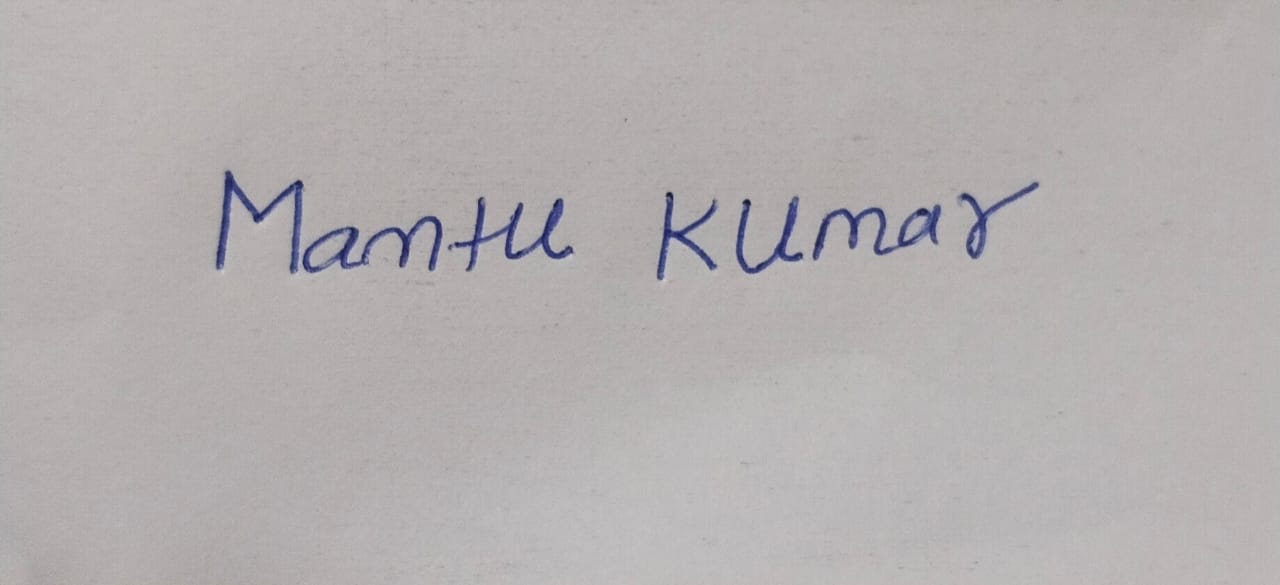 Mantu Kumar